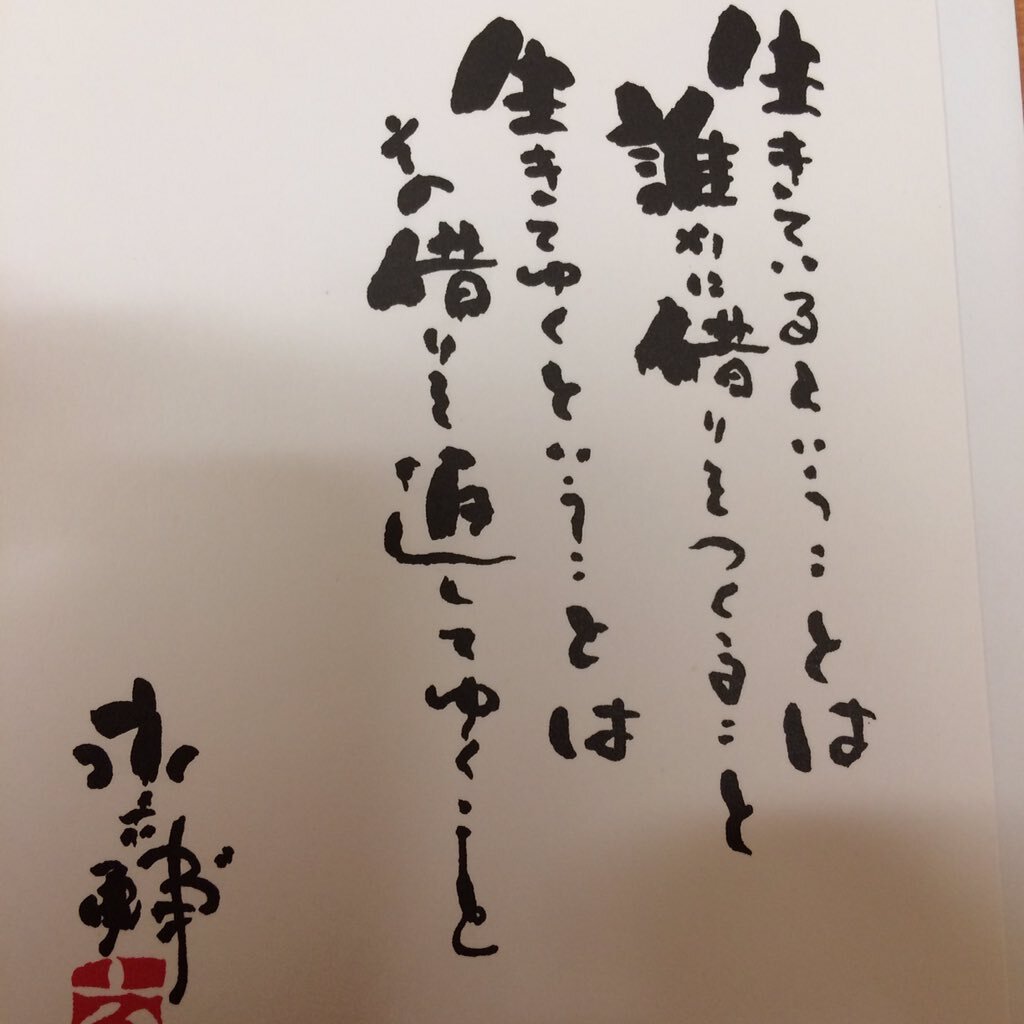 生きているということは
誰かに借りをつくること
生きてゆくということは
その借りを返してゆくこと
永六輔